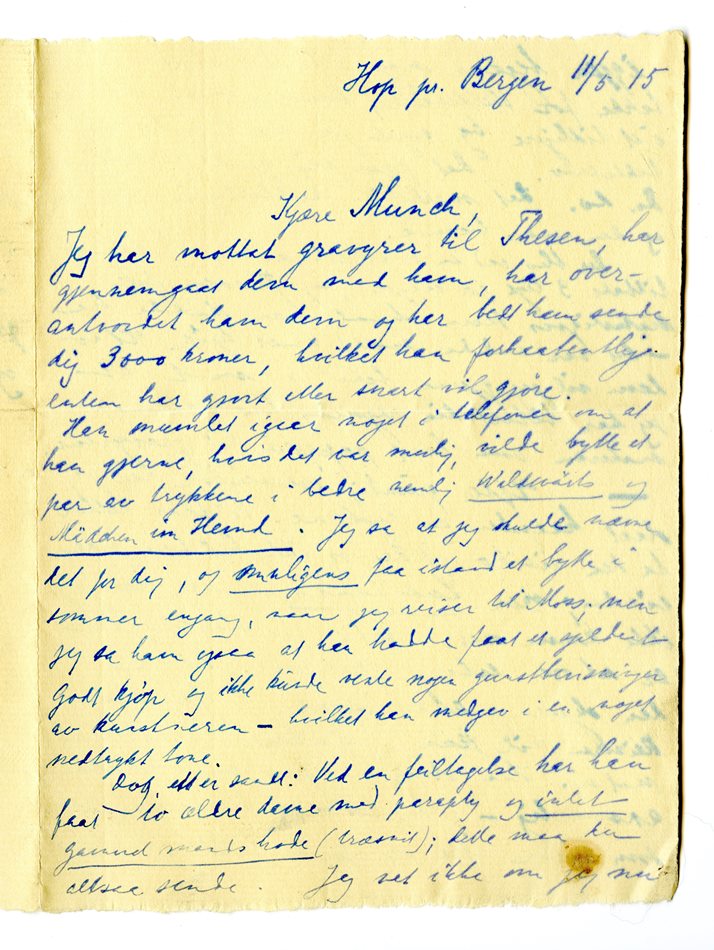 Hop pr. Bergen 11/5 15
Kjære Munch,
Jeg har mottat gravyrer til Thesen, har
gjennemgaat dem med ham, har over-
antvordet ham dem og har bedt ham sende
dig 3000 kroner, hvilket han forhaabentligt
enten har gjort eller snart vil gjöre.
Han mumlet igaar noget i telefonen om at
han gjerne, hvis det var mulig, vilde bytte et
par av trykkene i bedre nemlig Waldwärts og
Mädchen im Hemd. Jeg sa at jeg skulde nævne
det for dig, og muligens faa istand et bytte i
sommer engang, naar jeg reiser til Moss; men
jeg sa ham ogsaa at han hadde faat et
godt kjöp og ikke kunde vente nogen gunstbevisninger
av kunstneren – hvilket han medgav i en noget
nedtrykt tone.
Dog, et er sandt: Ved en feiltagelse har han
faat to ældre dame med paraply og intet
gammel mands hode (træsnit); dette maa du
altsaa sende. Jeg vet ikke om jeg